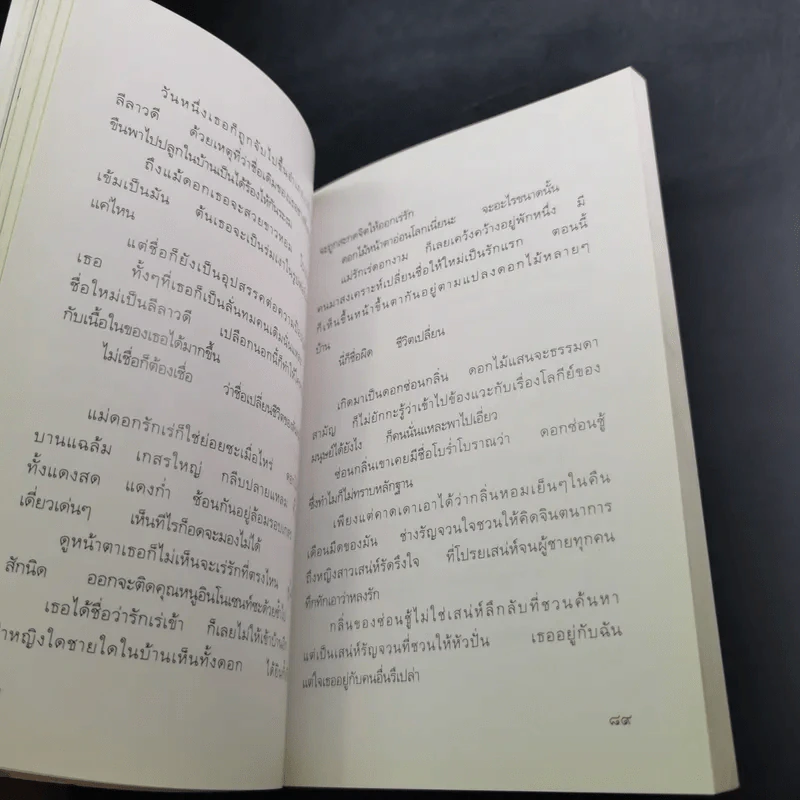 วันหนึ่งเธอก็ถูกจับไปขึ้น
ลีลาวดี ด้วยเหตุที่ว่าชื่อเดิมของ
ขืนพาไปปลูกในบ้านเป็นได้ร้องไห้กัน
ถึงแม้ดอกเธอจะสวยขาวหอม
เข้มเป็นมัน ต้นเธอจะเป็นร่มเงา
แค่ไหน
แต่ชื่อก็ยังเป็นอุปสรรคต่อความ
เธอ ทั้งๆที่เธอก็เป็นลั่นทมคนเดิมนั่น
ชื่อใหม่เป็นลีลาวดี เปลือกนอกนี้ก็ทำให้
กับเนื้อในของเธอได้มากขึ้น
ไม่เชื่อก็ต้องเชื่อ
ว่าชื่อเปลี่ยนชีวิตของ
แม่ดอกรักเร่ก็ใช่ย่อยซะเมื่อไหร่
บานแฉล้ม เกสรใหญ่ กลีบปลายแหลม
ทั้งแดงสด แดงก่ำ ซ้อนกันอยู่ล้อมรอบ
เดี่ยวเด่นๆ เห็นทีไรก็อดจะมองไม่ได้
ดูหน้าตาเธอก็ไม่เห็นจะเร่รักที่ตรงไหน
สักนิด ออกจะติดคุณหนูอินโนเซนท์ซะด้วยซ้ำ
เธอได้ชื่อว่ารักเร่เข้า ก็เลยไม่ให้เข้าบ้าน
หญิงใดชายใดในบ้านเห็นทั้งดอก
จะถูกสะกดจิตให้ออกเร่รัก
ดอกไม้หน้าตาอ่อนโลกเนี่ยนะ จะอะไรขนาดนั้น
แม่รักเร่ดอกงาม ก็เลยเคว้งคว้างอยู่พักหนึ่ง มี
คนมาสงเคราะห์เปลี่ยนชื่อให้ใหม่เป็นรักแรก ตอนนี้
ก็เห็นชื่นหน้าชื่นตากันอยู่ตามแปลงดอกไม้หลายๆ
บ้าน
นี่ก็ชื่อผิด ชีวิตเปลี่ยน
เกิดมาเป็นดอกซ่อนกลิ่น ดอกไม้แสนจะธรรมดา
สามัญ ก็ไม่ยักกะรู้ว่าเข้าไปข้องแวะกับเรื่องโลกีย์ของ
มนุษย์ได้ยังไง ก็คนนั่นแหละพาไปเอี่ยว
ซ่อนกลิ่นเขาเคยมีชื่อโบร่ำโบราณว่า ดอกซ่อนชู้
ซึ่งทำไมก็ไม่ทราบหลักฐาน
เพียงแต่คาดเดาเอาได้ว่ากลิ่นหอมเย็นๆในคืน
เดือนมืดของมัน ช่างรัญจวนใจชวนให้คิดจินตนาการ
ถึงหญิงสาวเสน่ห์รัดรึงใจ ที่โปรยเสน่ห์จนผู้ชายทุกคน
ทึกทักเอาว่าหลงรัก
กลิ่นของซ่อนชู้ไม่ใช่เสน่ห์ลึกลับที่ชวนค้นหา
แต่เป็นเสน่ห์รัญจวนที่ชวนให้หัวปั่น เธออยู่กับฉัน
แต่ใจเธออยู่กับคนอื่นรึเปล่า
๘๙